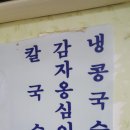 냉콩국수
감자옹심이
칼국수